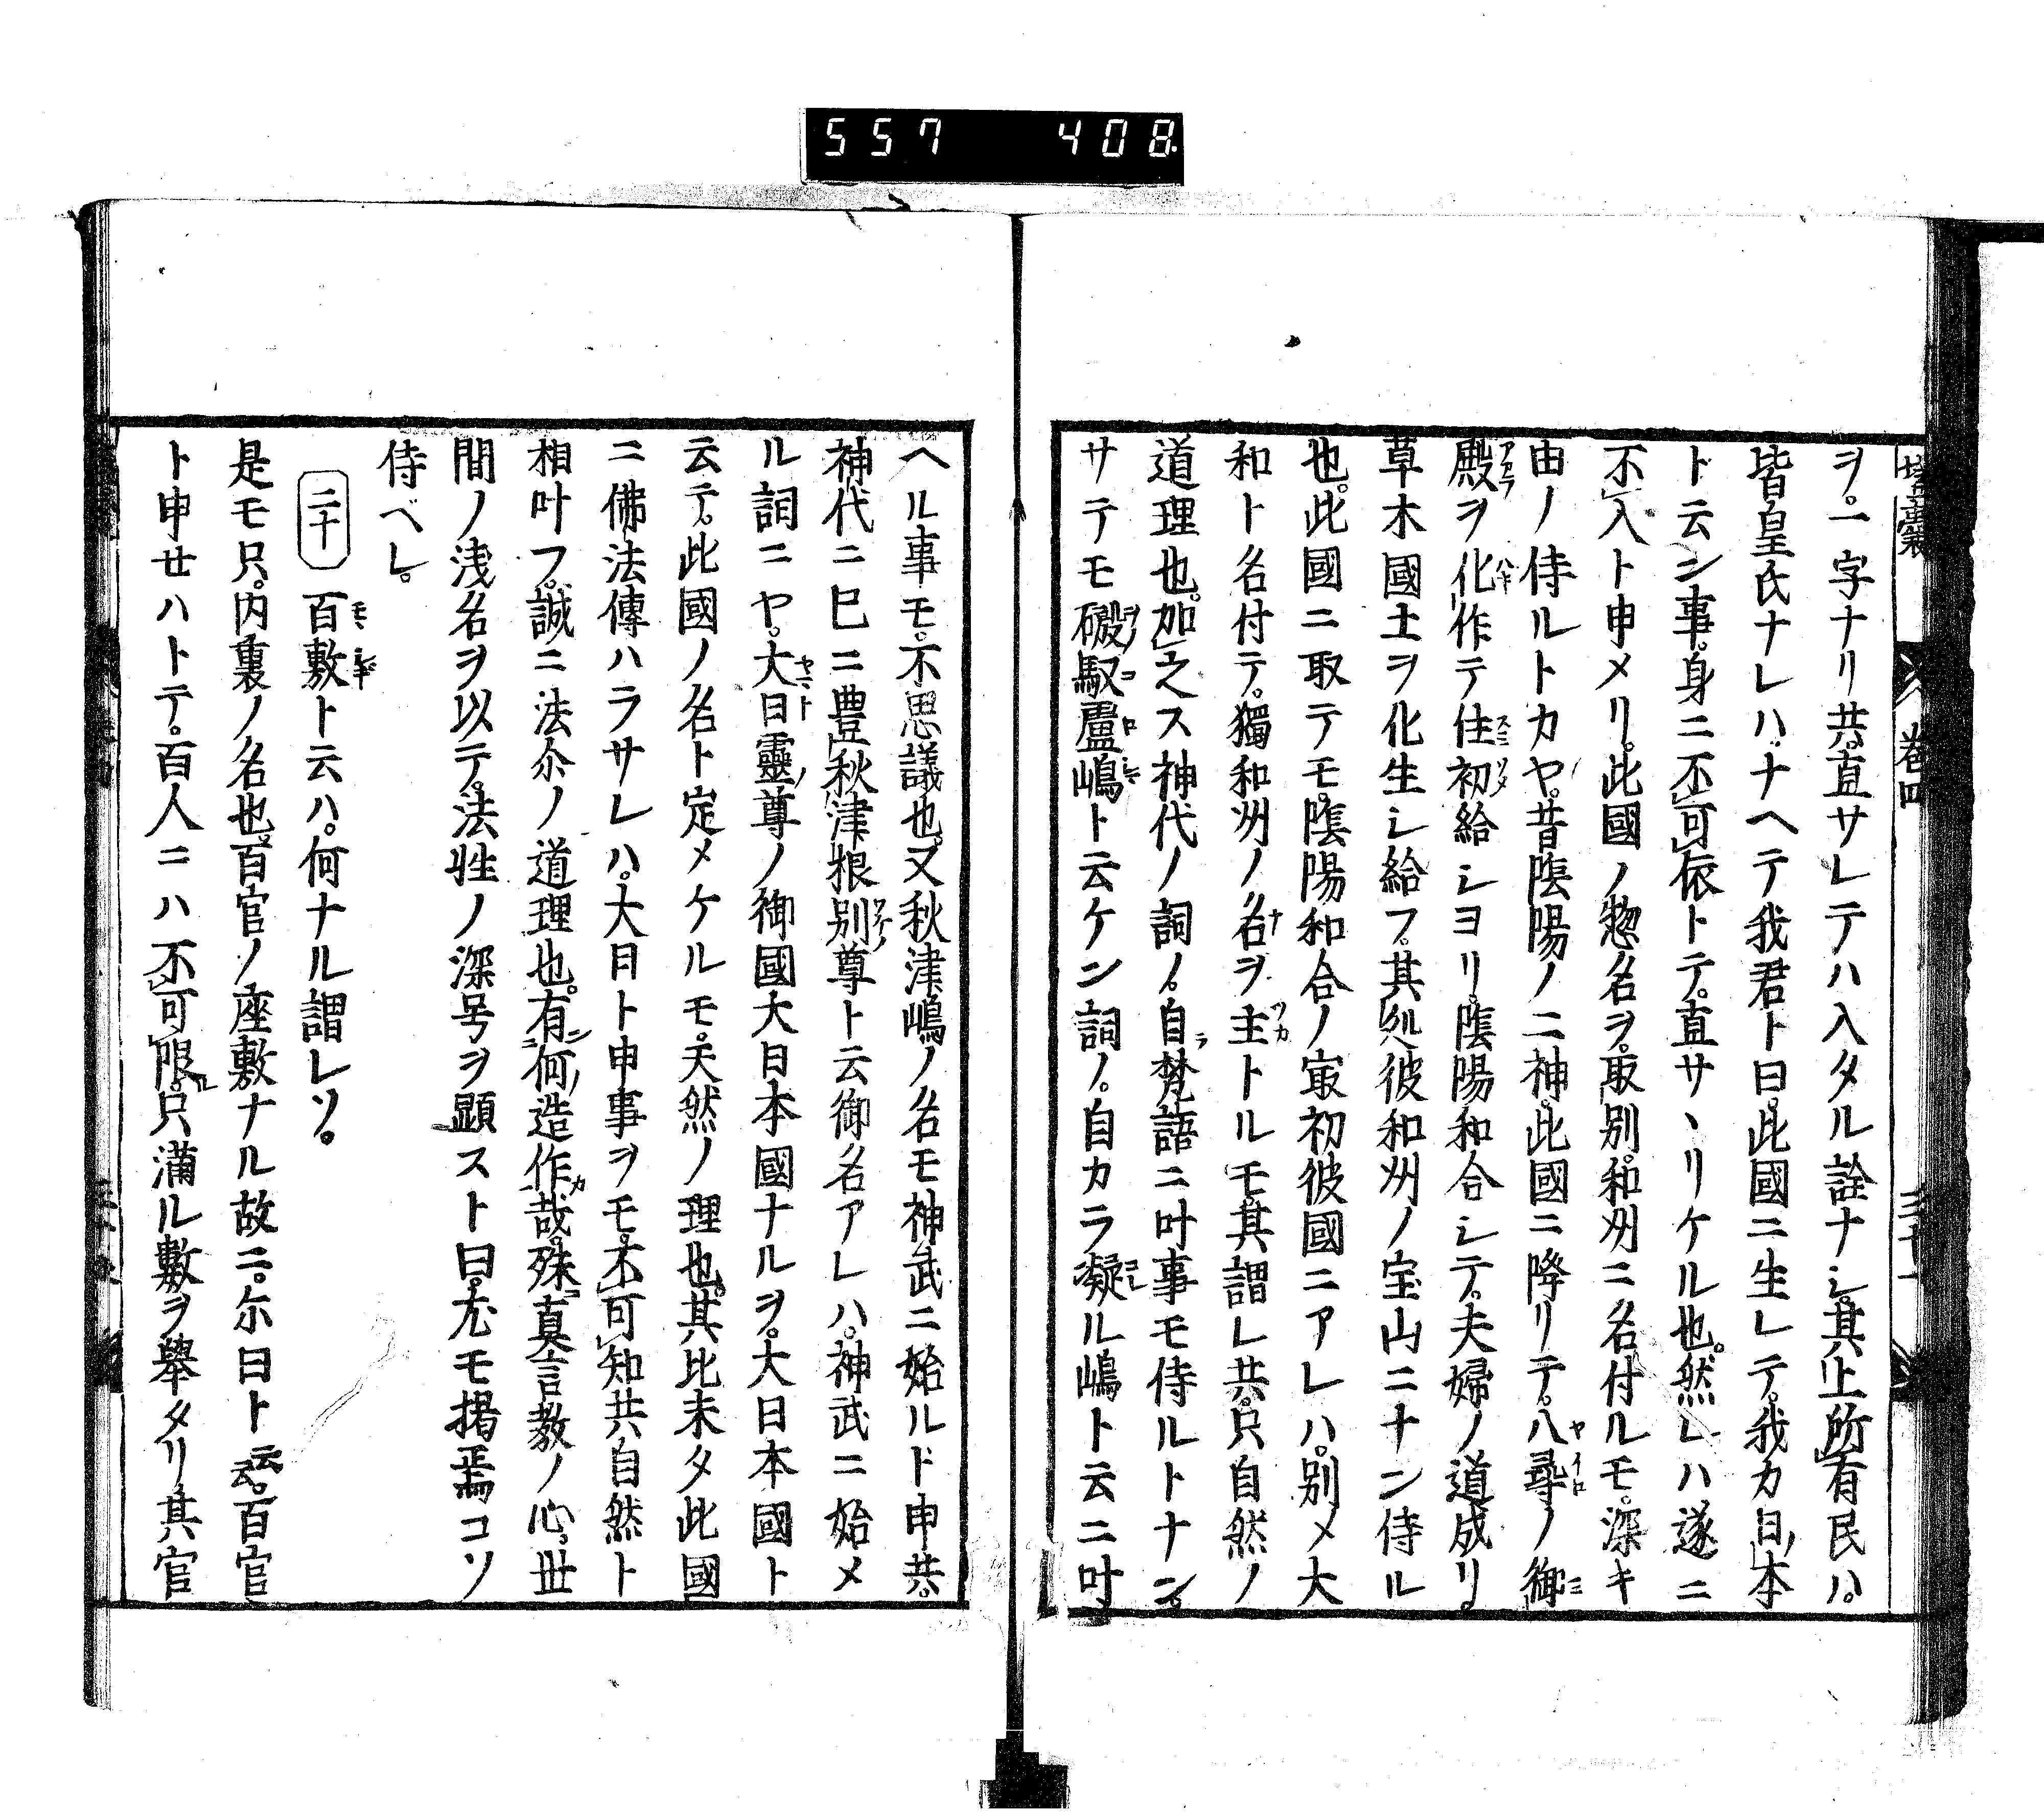 557 408
塵添壒囊鈔 巻四 三十一
ヲ。一字ナリ共。直サレテハ入タル詮ナシ。其上所有民ハ。
皆皇氏ナレハ。ナヘテ我君ト曰。此國ニ生レテ。我カ日本
ト云ン事。身ニ不可依トテ。直サヽリケル也。然レハ遂ニ
不入ト申メリ。此國ノ惣名ヲ。取別。和州ニ名付ルモ。深キ
由ノ侍ルトカヤ。昔陰陽ノ二神。此國ニ降リテ。八尋ノ御
殿ヲ化作テ住初給シヨリ。陰陽和合シテ。夫婦ノ道成リ
草木國土ヲ化生シ給フ。其処彼和州ノ宝山ニナン侍ル
也。此國ニ取テモ。陰陽和合ノ最初彼國ニアレハ。別メ大
和ト名付テ。獨和州ノ名ヲ主トルモ其謂レ共。只自然ノ
道理也。加之ス神代ノ詞ノ。自梵語ニ叶事モ侍ルトナン。
サテモ磤馭盧嶋ト云ケン詞ノ。自カラ凝ル嶋ト云ニ叶
ヘル事モ。不思議也。又秋津嶋ノ名モ神武ニ始ルド申共。
神代ニ巳ニ豊秋津根別尊ト云御名アレハ。神武ニ始メ
ル詞ニヤ。大日靈尊ノ御國大日本國ナルヲ。大日本國ト
云テ。此國ノ名ト定メケルモ。天然ノ理也。其比未タ此國
ニ佛法傳ハラサレハ。大日ト申事ヲモ。不可知共自然ト
相叶フ。誠ニ法尓ノ道理也。有何造作哉。殊真言教ノ心。世
間ノ浅名ヲ以テ。法性ノ深号ヲ顕スト曰。尤モ掲焉コソ
侍ベレ。
二十 百敷ト云ハ。何ナル謂レソ。
是モ只。内裏ノ名也。百官ノ座敷ナル故ニ。尓曰ト云云。百官
ト申せハトテ。百人ニハ不可限。只滿ル數ヲ舉タリ其官